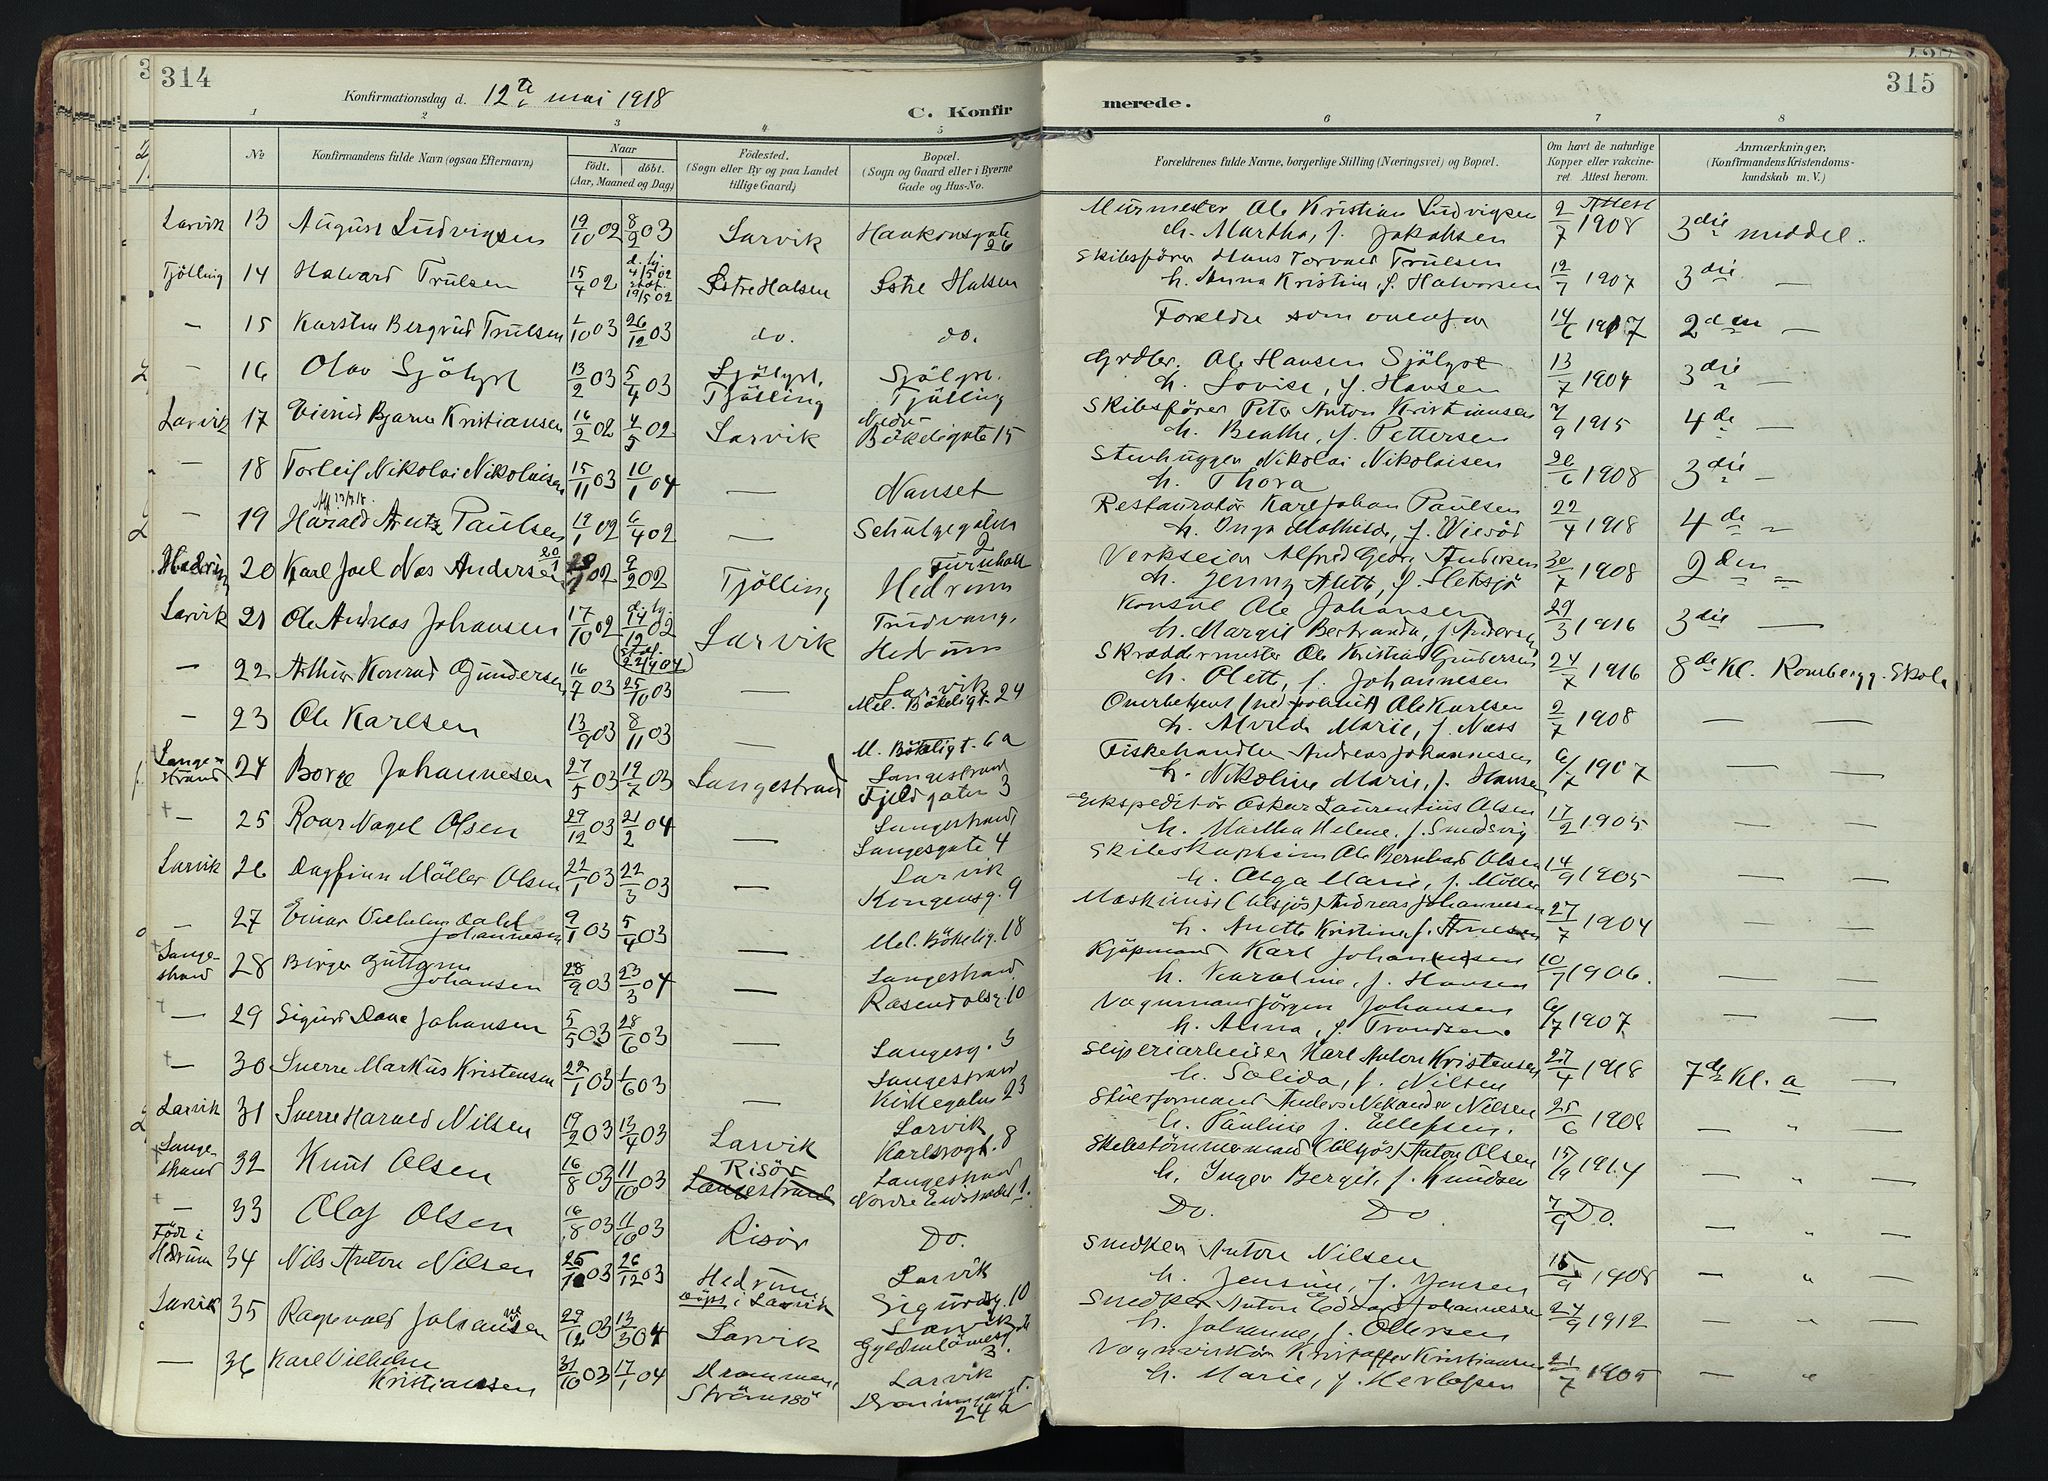 314
Konfirmationsdag d. 12te mai 1918
C. Konfir
merede.
315
1 2 3 4 5 6 7 8
No
Konfirmandens fulde Navn (ogsaa Efternavn)
Naar
født. døbt.
(Aar, Maaned og Dag)
Fødested.
(Sogn eller By og paa Landet
tillige Gaard)
Bopæl.
(Sogn og Gaard eller i Byerne
Gade og Hus-No.
Forældrenes fulde Navne, borgerlige Stilling (Næringsvei) og Bopæl.
Om havt de naturlige
Kopper eller vakcine-
ret. Attest herom.
Anmærkninger.
(Konfirmandens Kristendoms-
kundskab m. V.)
Larvik 13 August Ludvigsen 19/10 02 8/2 03 Larvik Haakonsgate 26 Murmester Ole Kristian Ludvigsen Attest 2/7 1908 3die middel.
h. Martha, f. Jakobsen
Tjölling 14 Halvard Trulsen 15/4 02 d. hj. 4/5 02 stadf. 19/5 02 Östre Halsen Östre Halsen Skibsförer Hans Torvald Trulsen 12/7 1907 3die —
h. Anna Kristine, f. Halvorsen
— 15 Karsten Bergvid Trulsen 1/10 03 26/12 03 do. do. Foreldre som ovenfor 14/6 1917 2den —
— 16 Olav Sjölyst 13/2 03 5/4 03 Sjölyst, Tjölling Sjölyst. Tjölling Ole Hansen Sjölyst 13/7 1904 3die —
h. Lovise, f. Hansen
Larvik 17 Eivind Bjarne Kristiansen 16/2 02 4/5 02 Larvik Nedre Bökeligate 15 Skibsförer Peter Anton Kristiansen 7/9 1915 4de —
h. Beathe, f. Pettersen
— 18 Torleif Nikolai Nikolaisen 15/11 03 10/1 04 — Nanset Stenhugger Nikolai Nikolaisen 26/6 1908 3die —
h. Thora
— 19 Harald Paulsen 19/1 02 6/4 02 — Schultzegaten 2 Restauratör Karl Johan Paulsen 22/4 1918 4de —
h. Inga Mathilde, f. Wieröd
Hedrum 20 Karl Joel Nas Andersen 20/1 02 9/2 02 Tjölling Furuholt Hedrum Verkseier Alfred Georg Andersen 30/7 1908 2den —
h. Jenny Anette, f. Sletsjö
Larvik 21 Ole Andreas Johansen 17/10 02 d. hj. 14/12 02 stadf. 22/4 04 Larvik Trudvang, Hedrum Konsul Ole Johansen 29/3 1916 3die —
h. Margit Bertranda, f. Andersen
— 22 Arthur Konrad Gundersen 16/7 03 25/10 03 — Larvik Mel. Bökeligt. 24 Skræddermester Ole Kristian Gundersen 24/7 1916 8de Kl. Romberg g. Skole
h. Olette, f. Johannesen
— 23 Ole Karlsen 13/9 03 8/11 03 — M. Bökeligt. 6a Overbetjent (ved politiet) Ole Karlsen 2/7 1908 — —
h. Alvilde Marie, f. Næss
Lange-
strand 24 Borge Johannesen 27/5 03 19/7 03 Langestrand Langestrand Fjeldgaten 3 Fiskehandler Andreas Johannesen 6/7 1907 — —
h. Nikoline Marie, f. Hansen
— 25 Roar Nagel Olsen 29/12 03 21/2 04 — Langestrand Langesgate 4 Ekspeditör Oskar Laurentius Olsen 17/2 1905 — —
h. Martha Helene, f. Smedsvig
Larvik 26 Dagfinn Möller Olsen 22/1 03 22/3 03 — Larvik Kongensg. 9 Skibskaptein Ole Bernhard Olsen 14/9 1905 — —
h. Olga Marie, f. Möller
— 27 Einar Vilhelm Dahl Johannesen 9/1 03 5/4 03 — Mel. Bökelig. 18 Maskinist (tilsjös) Andreas Johannesen 27/7 1904 — —
h. Anette Kristine f. Arnesen
Lange-
strand 28 Birger Guttorm Johansen 28/9 03 23/3 04 — Langestrand Rosendalsg. 10 Kjöpmand Karl Johannesen 10/7 1906. — —
h. Karoline, f. Hansen
— 29 Sigurd Dane Johansen 5/5 03 28/6 03 — Langesg. 3 Vognmand Jörgen Johansen 6/7 1907 — —
h. Anna, f. Trondsen.
— 30 Sverre Markus Kristensen 22/1 03 1/6 03 — Langestrand Kirkegaten 23 Sliperiarbeider Karl Anton Kristensen 27/4 1918 7de Kl. a —
h. Solida, f. Nilsen
Larvik 31 Sverre Harald Nilsen 19/2 03 13/4 03 Larvik Larvik Karlsrogt. 8 Anders Nikander Nilsen 25/6 1908 — " —
h. Pauline f. Ellefsen.
Lange-
strand 32 Knut Olsen 16/8 03 11/10 03 Risör Langestrand Langestrand Skibstömmermand (tilsjös) Anton Olsen 15/9 1914 — " —
h. Inger Bergit, f. Knudsen
— 33 Olaf Olsen 16/8 03 11/10 03 Risör Do. Do. Do. 7/9 Do. — " —
Födt i
Hedrum 34 Nils Anton Nilsen 25/10 03 26/12 03 Hedrum, döpt i Larvik Larvik Sigurdsg. 10 Snedker Anton Nilsen 15/9 1908 — " —
h. Jensine, f. Jensen
Larvik 35 Ragnvald Johansen 29/12 03 13/3 04 Larvik Larvik Gyldenlövesgate 3. Snedker Anton Edvard Johannesen 24/9 1912 — " —
h. Johanne, f. Ollersen
— 36 Karl Vilhelm Kristiansen 31/10 03 17/1 04 Drammen, Strömsö Larvik Dronningensgt. 24a Kristoffer Kristiansen 21/7 1905 — "
h. Marie, f. Herlofsen